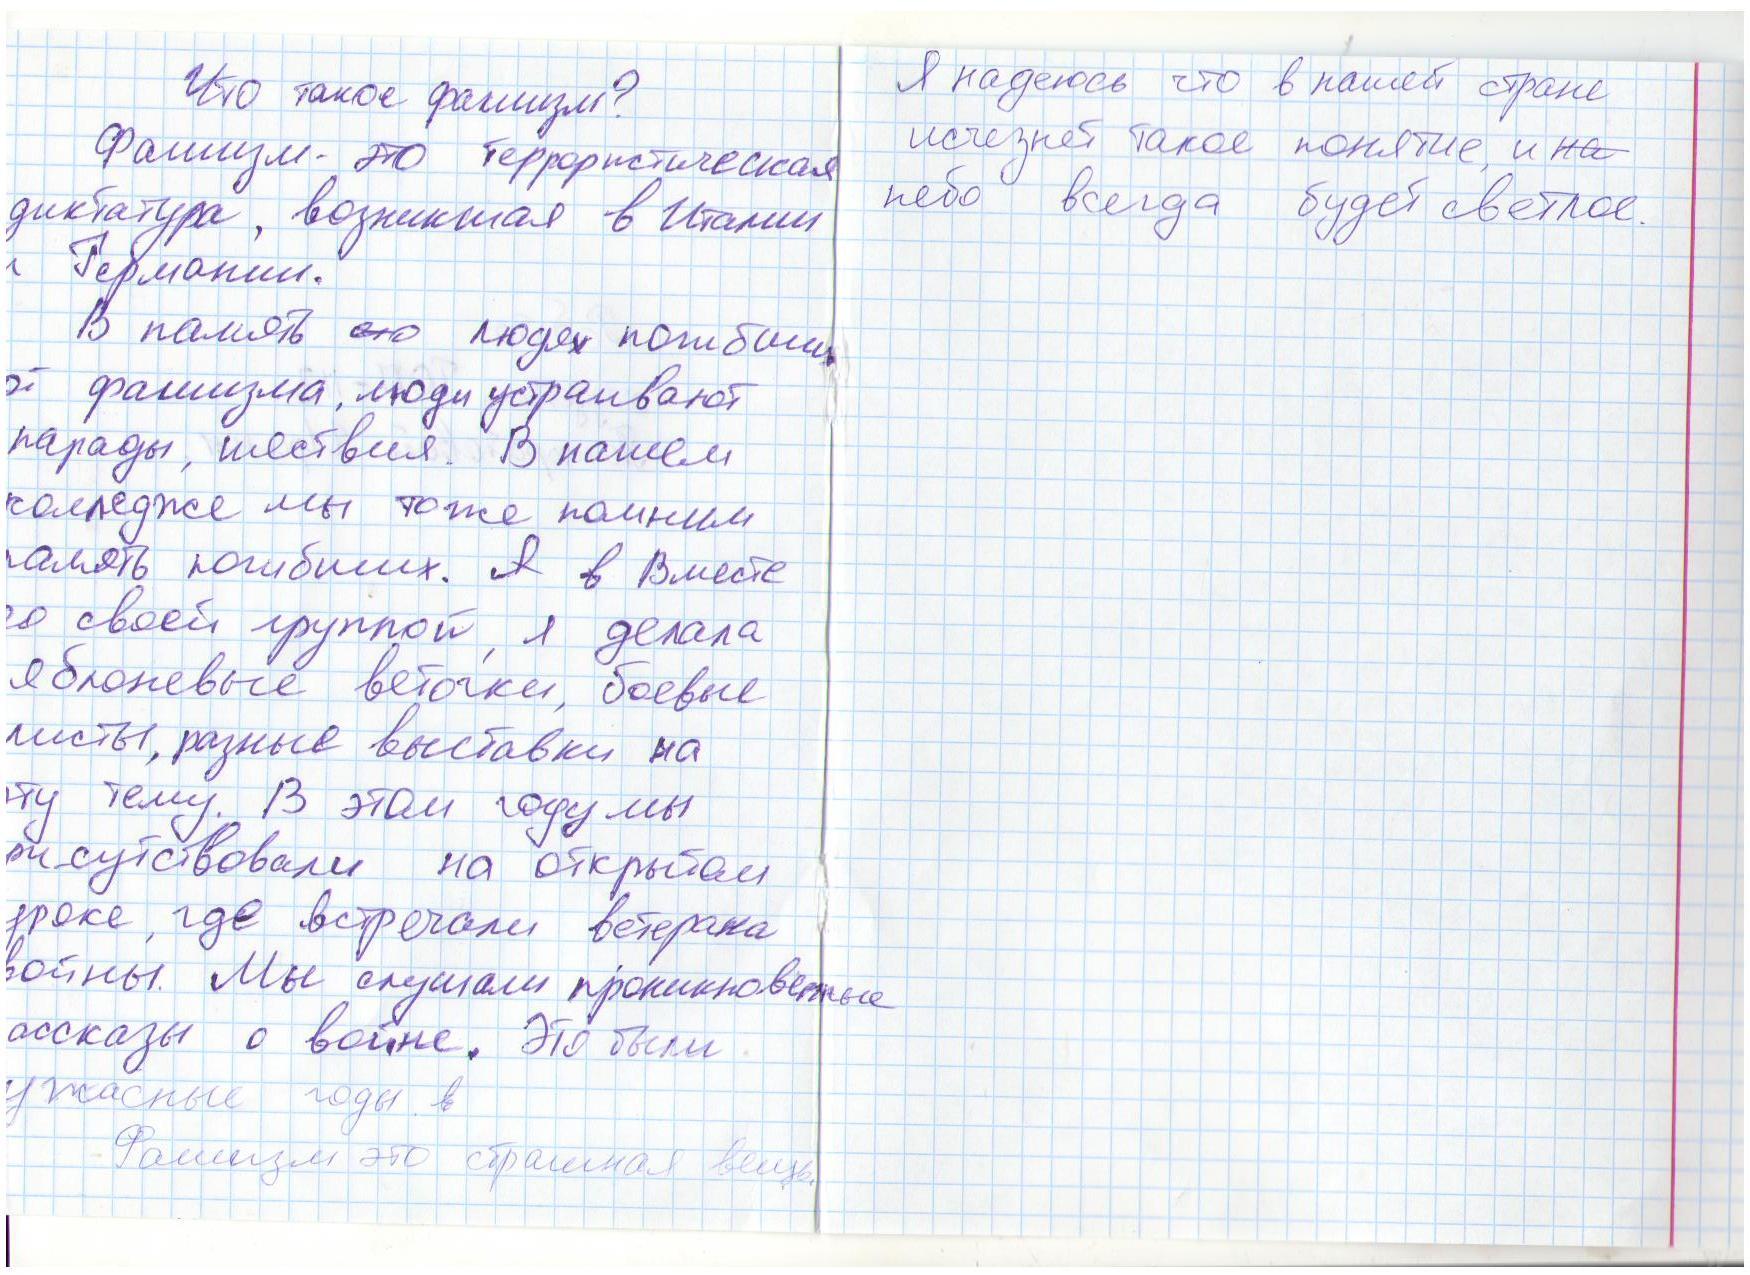 Что такое фашизм?
Фашизм - это террористическая
диктатура, возникшая в Италии
и Германии.
В память его людях погибших
от фашизма, люди устраивают
парады, шествия. В нашем
колледже мы тоже помним
память погибших. Я в Вместе
со своей группой, я делала
яблоневые веточки, боевые
листы, разные выставки на
эту тему. В этом году мы
присутствовали на открытом
уроке, где встречали ветерана
войны. Мы слушали проникновенные
рассказы о войне. Это были
ужасные годы в
Фашизм это страшная вещь.
Я надеюсь что в нашей стране
исчезнет такое понятие, и на
небо всегда будет светлое.